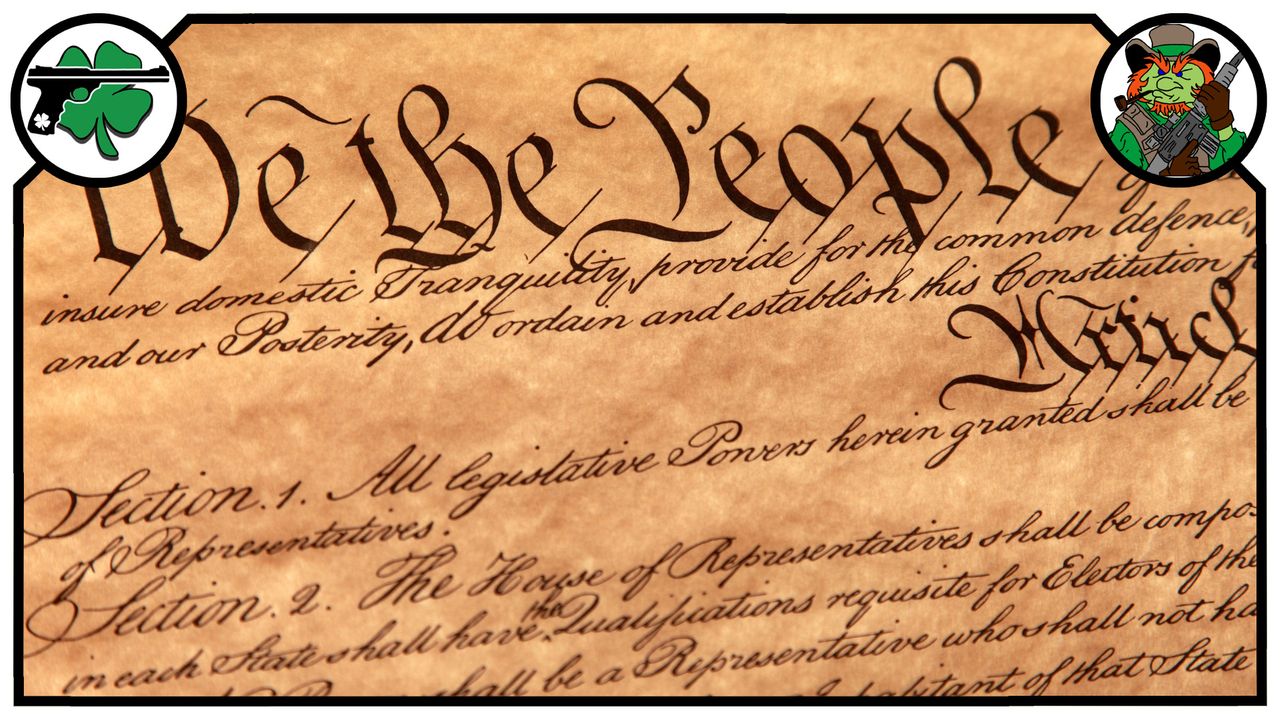 We the People
insure domestic Tranquility, provide for the common defence,
and our Posterity, do ordain and establish this Constitution
Articl
Section. 1. All legislative Powers herein granted shall be
of Representatives.
Section. 2. The House of Representatives shall be compo
in each State shall have the Qualifications requisite for Electors of the
shall be a Representative who shall not ha
of that State